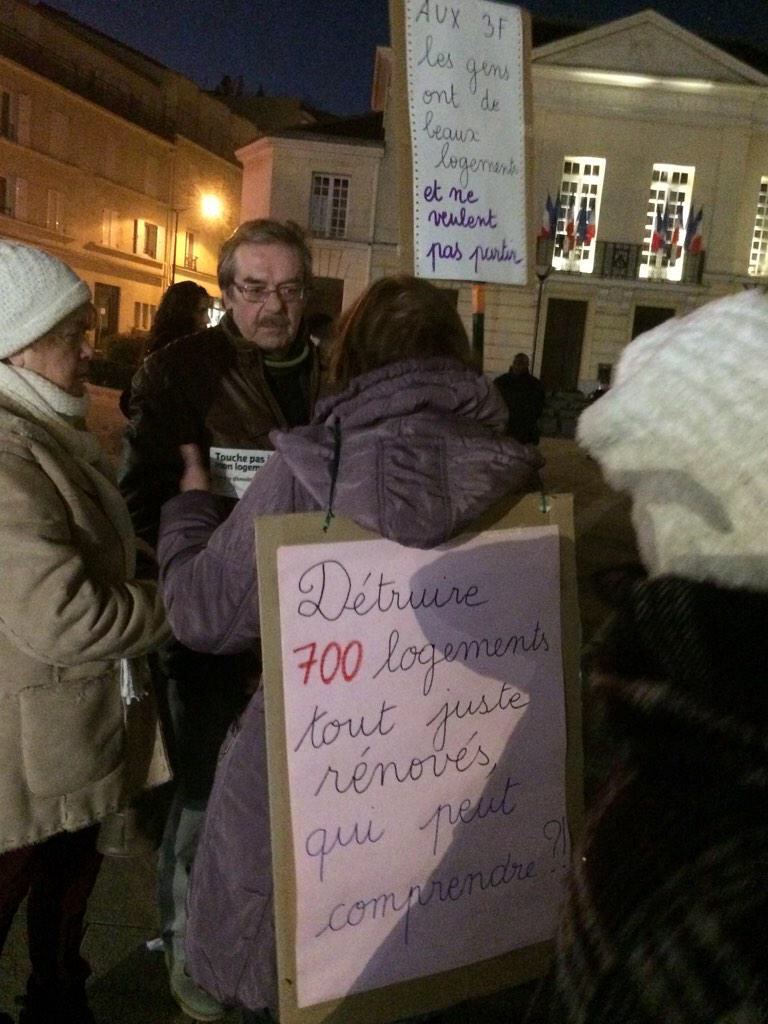 AUX 3F
les gens
ont de
beaux
logements
et ne
veulent
pas partir
Touche pas
mon logem
Détruire
700 logements
tout juste
rénovés,
qui peut
comprendre ?!